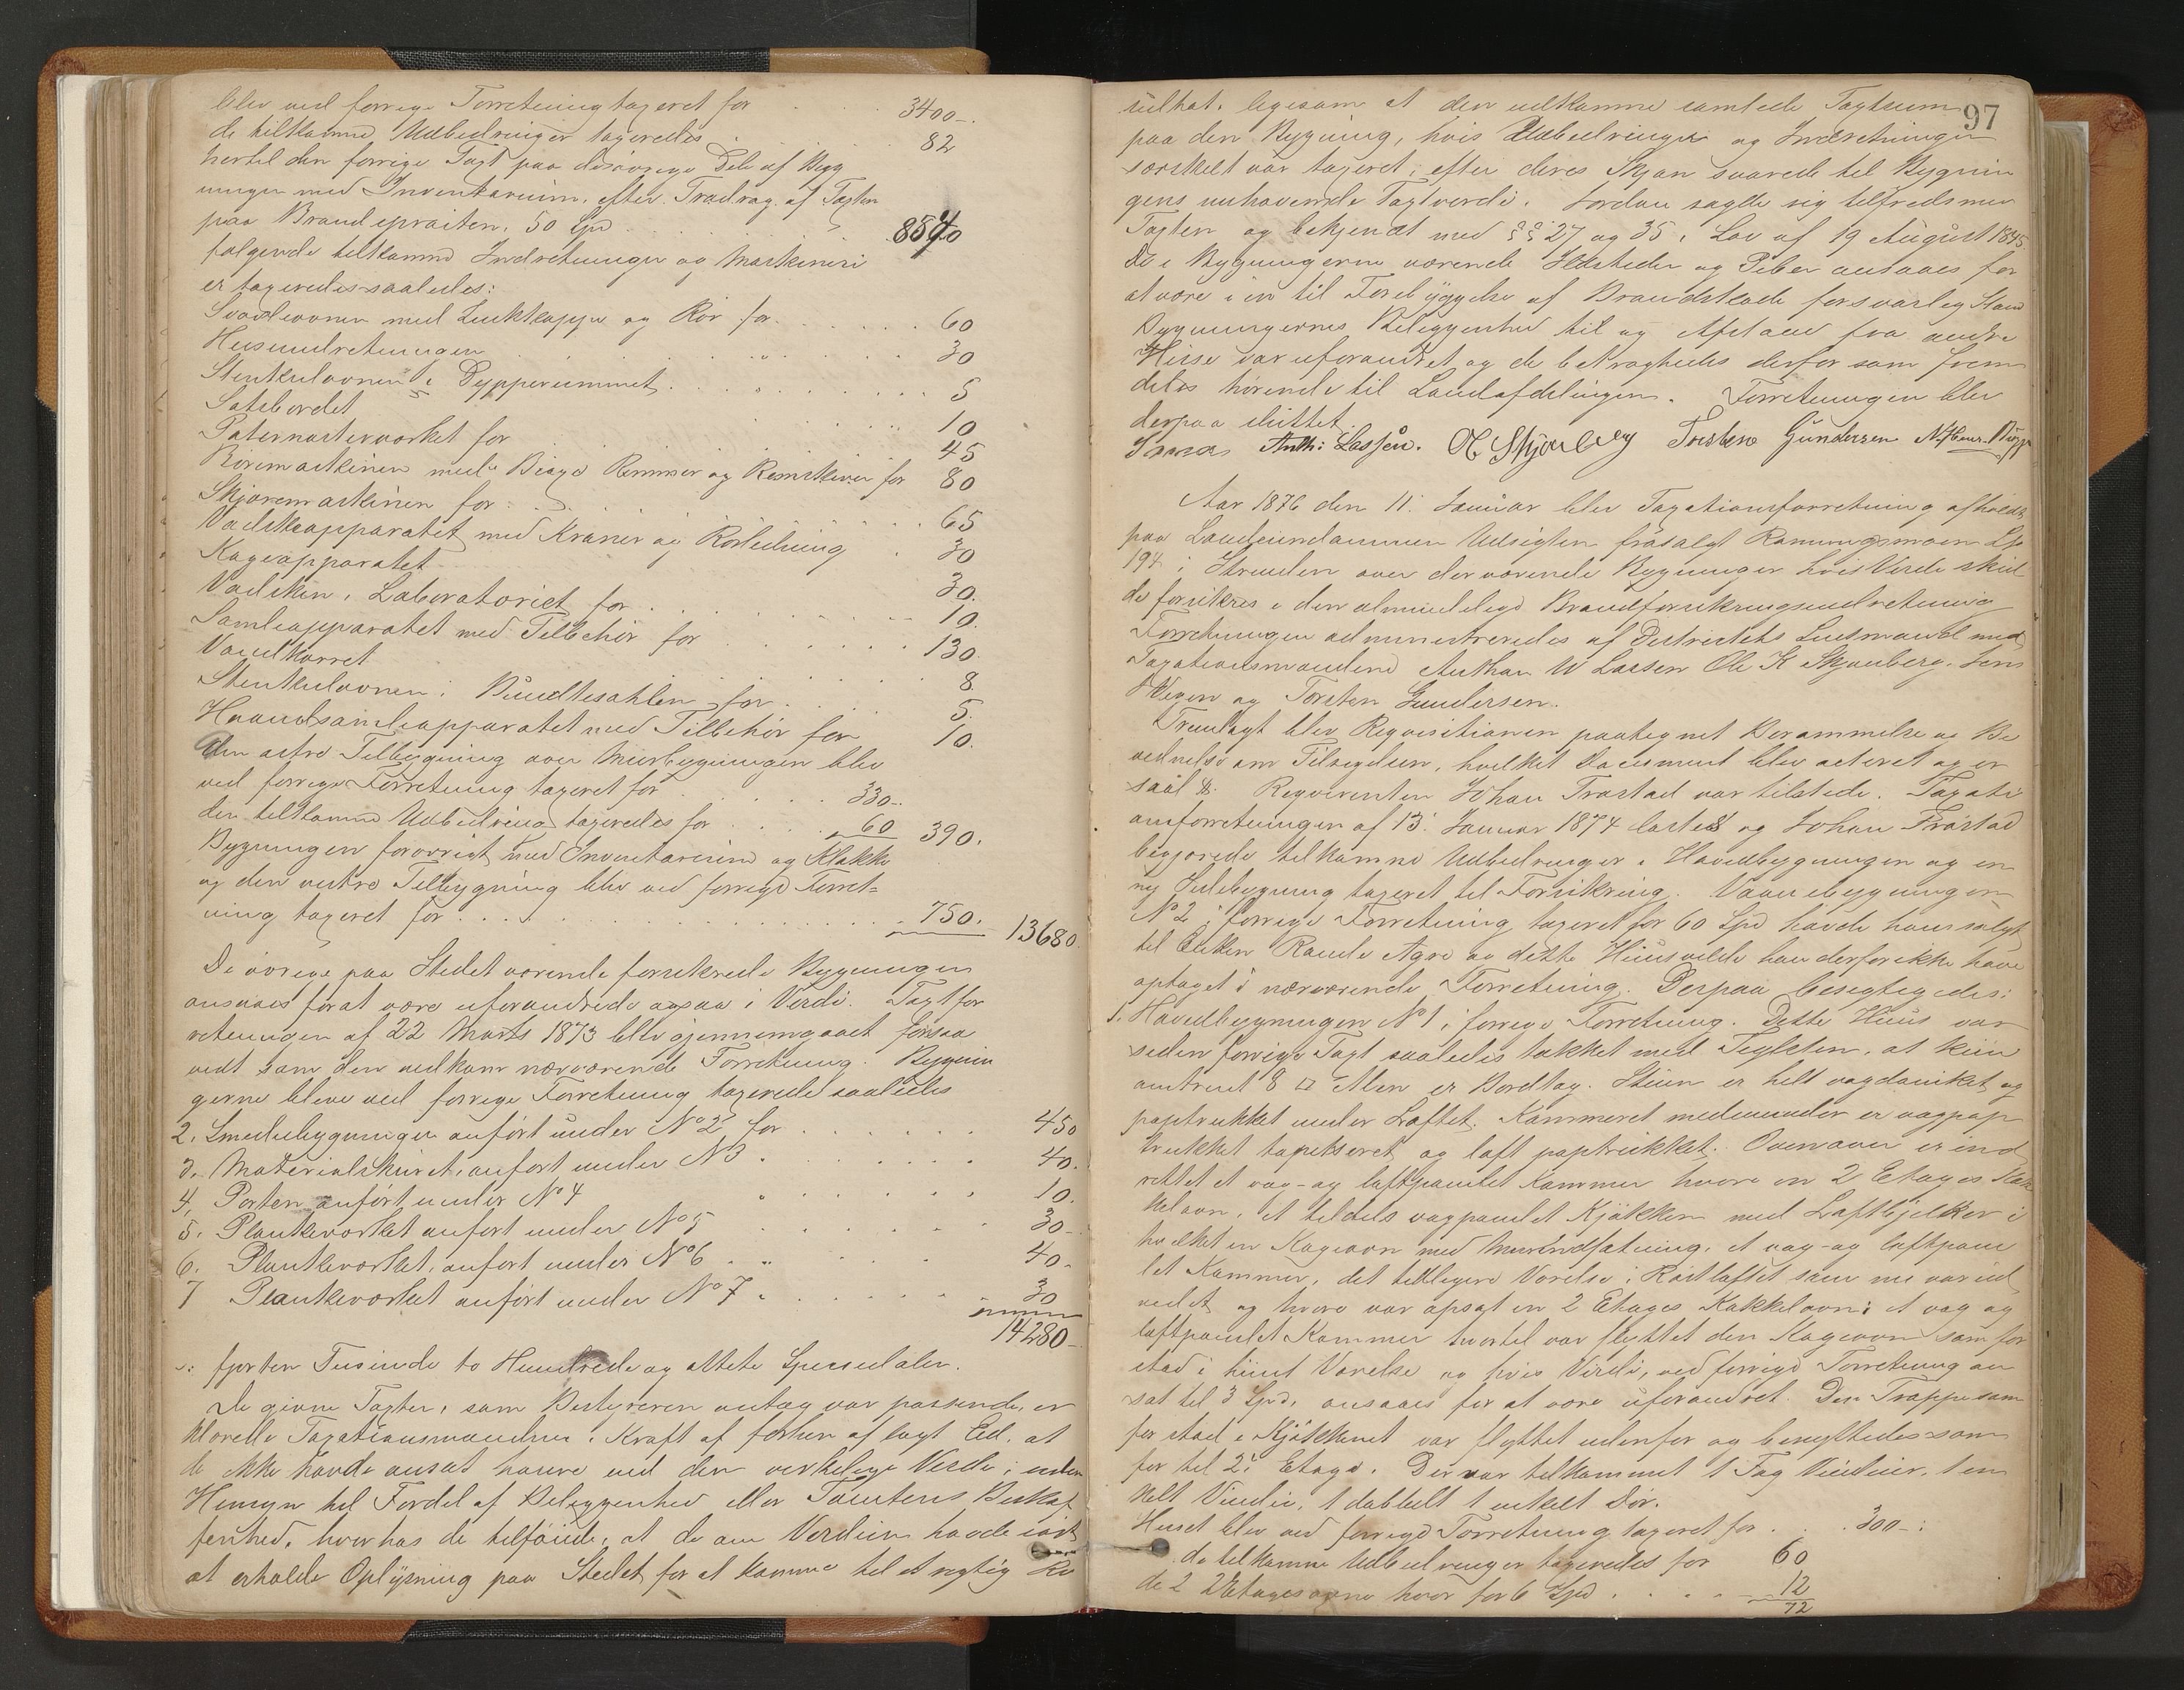 blev ved forrige Forretning taxeret for 3400-.
de tilkomne Udbedringer taxeredes 82
hertil den forrige Taxt paa den øvrige Del af Byg
ningen med Inventarium, efter Fradrag af Taxten
paa Brandsprøiten, 50 Spd 8540
følgende tilkomne Indretninger og Maskineri
er taxeredes saaledes:
Svovlovnen med Lukkekappe og Rør for 60
Husindretningen 30
Stenkulovnen i Dypperummet 5
Satsbordet 10
Paternosterværket for 45
Rivemaskinen med Remmer og Remskiver for 80
Skjæremaskinen for 65
Vadskeapparatet med Kraner og Rørledning 30
Kogeapparatet 30.
Vadsken i Laboratoriet for 10.
Samleapparatet med Tilbehør for 130.
Vandkarret 8.
Stenkulovnen i Bundtesahlen for 5.
Haandsamleapparatet med Tilbehør for 10.
den østre Tilbygning over Murbygningen blev
ved forrige Forretning taxeret for 330-.
den tilkomne Udbedring taxeredes for 60 390.
Bygningen forøvrigt med Inventarium og Klokke
og den vestre Tilbygning blev ved forrige Forret-
ning taxeret for 750. 13680.
De øvrige paa Stedet værende forsikrede Bygninger
ansaaes for at være uforandrede ogsaa i Verdi. Taxtfor
retningen af 22 Marts 1873 blev gjennemgaaet forsaa
vidt som den vedkom nærværende Forretning. Bygnin
gerne bleve ved forrige Forretning taxerede saaledes
2. Smedebygningen anført under No 2 for 450
3. Materialskuret, anført under No 3 40.
4. Porten anført under No 4 10.
5. Plankeværket anført under No 5 30-
6. Plankeværket, anført under No 6 40-
7 Plankeværket anført under No 7 30
14280-
fjorten Tusinde to Hundrede og otteti Speciedaler.
De givne Taxter, som Bestyreren antog var passende, er
klærede Taxationsmændene i Kraft af forhen aflagt Eed, at
de ikke havde ansat høiere end den virkelige Verdi, uden
Hensyn til Fordel af Beliggenhed eller Tomtens Beskaf
fenhed, hvorhos de tilføiede, at de om Verdien havde søgt
at erholde Oplysning paa Stedet for at komme til et rigtig Re
97
sultat, ligesom at den udkomne samlede Taxtsum
paa den Bygning, hvis Udbedringer og Indretninger
særskilt var taxeret, efter deres Skjøn svarede til Bygnin
gens nuhavende Taxtverdi. Jordan sagde sig tilfreds med
Taxten og bekjendt med §§ 27 og 35 i Lov af 19 August 1845
De i Bygningerne værende Ildsteder og Piber ansaaes for
at være i en til Forebyggelse af Brandskade forsvarlig Stand
Bygningernes Beliggenhed til og Afstand fra andre
Huse var uforandret og de betragtedes derfor som frem
deles hørende til Landafdelingen. Forretningen blev
derpaa sluttet.
Anth: Lassen. O K Skjønberg Torsten Gundersen
Aar 1876 den 11. Januar blev Taxationsforretning afholdt
paa Landeiendommen Udsigten frasolgt Ramungsmoen
194 i Stranden over derværende Bygninger hvis Verdi skul
de forsikres i den almindelige Brandforsikringsindretning
Forretningen administreredes af Distriktets Lensmand med
Taxationsmændene Anthon W Larsen Ole K Skjønberg, Jens
Wegen og Torsten Gundersen.
Fremlagt blev Reqvisitionen paategnet Berammelse og Be
vidnelse om Tilsigelsen, hvilket Document blev acteret og er
saal. Reqvirenten Johan Frøstad var tilstede. Taxati
onsforretningen af 13. Januar 1874 læstes og Johan Frøstad
begjærede tilkomne Udbedringer i Hovedbygningen og en
ny Sidebygning taxeret til Forsikring. Vaanebygningen
No 2 i forrige Forretning taxeret for 60 Spd havde han solgt
til Enken Rande Agre og dette Huus vilde han derfor ikke have
optaget i nærværende Forretning. Derpaa besigtigedes:
1. Hovedbygningen No 1 i forrige Forretning. Dette Huus var
siden forrige Taxt saaledes takket med Teglsten, at kun
omtrent 8 □ Alen er Bordtag. Stuen er helt vægpanket og
paptrukket under Loftet. Kammeret nedenunder er vægpap
trukket tapetseret og loft paptrukket. Ovenover er ind
rettet et væg- og loftpanelet Kammer hvori en 2 Etages Kak
kelovn, et tildels vægpanelet Kjøkken med Loftbjelker i
hvilket en Kogeovn med Murindfatning, et væg- og loftpane
let Kammer, det tidligere Værelse i Røstloftet som nu var ud
videt og hvori var opsat en 2 Etages Kakkelovn; et væg og
loftpanelet Kammer hvortil var flyttet den Kogeovn som for
stod i hiint Værelse og hvis Verdi, ved forrige Forretning an
sat til 3 Spd, ansaaes for at være uforandret. Den Trappe som
før stod i Kjøkkenet var flyttet udenfor og benyttedes som
før til 2. Etage. Der var tilkommet 1 Fag Vinduer, 1 en
kelt Vindu, 1 dobbelt 1 enkelt Dør.
Huset blev ved forrige Forretning taxeret for 300-:
de tilkomne Udbedringer taxeredes for 60
de 2 2Etagesovne hver for 6 Spd 12
72